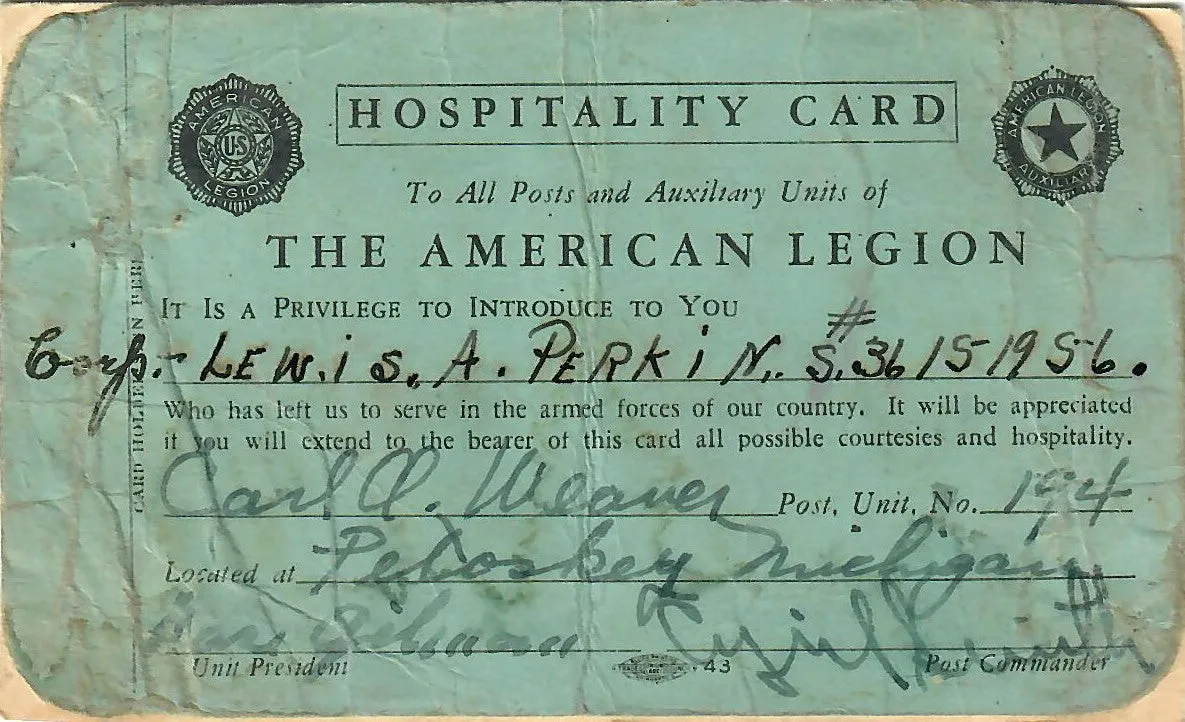 AMERICAN LEGION US
HOSPITALITY CARD
AMERICAN LEGION AUXILIARY
To All Posts and Auxiliary Units of
THE AMERICAN LEGION
IT IS A PRIVILEGE TO INTRODUCE TO YOU
Corp:- LEWIS. A. PERKINS. #36151956.
Who has left us to serve in the armed forces of our country. It will be appreciated
if you will extend to the bearer of this card all possible courtesies and hospitality.
Carl O. Weaver Post, Unit, No. 194
Located at Petoskey Michigan
Unit President 43 Post Commander
CARD HOLDER